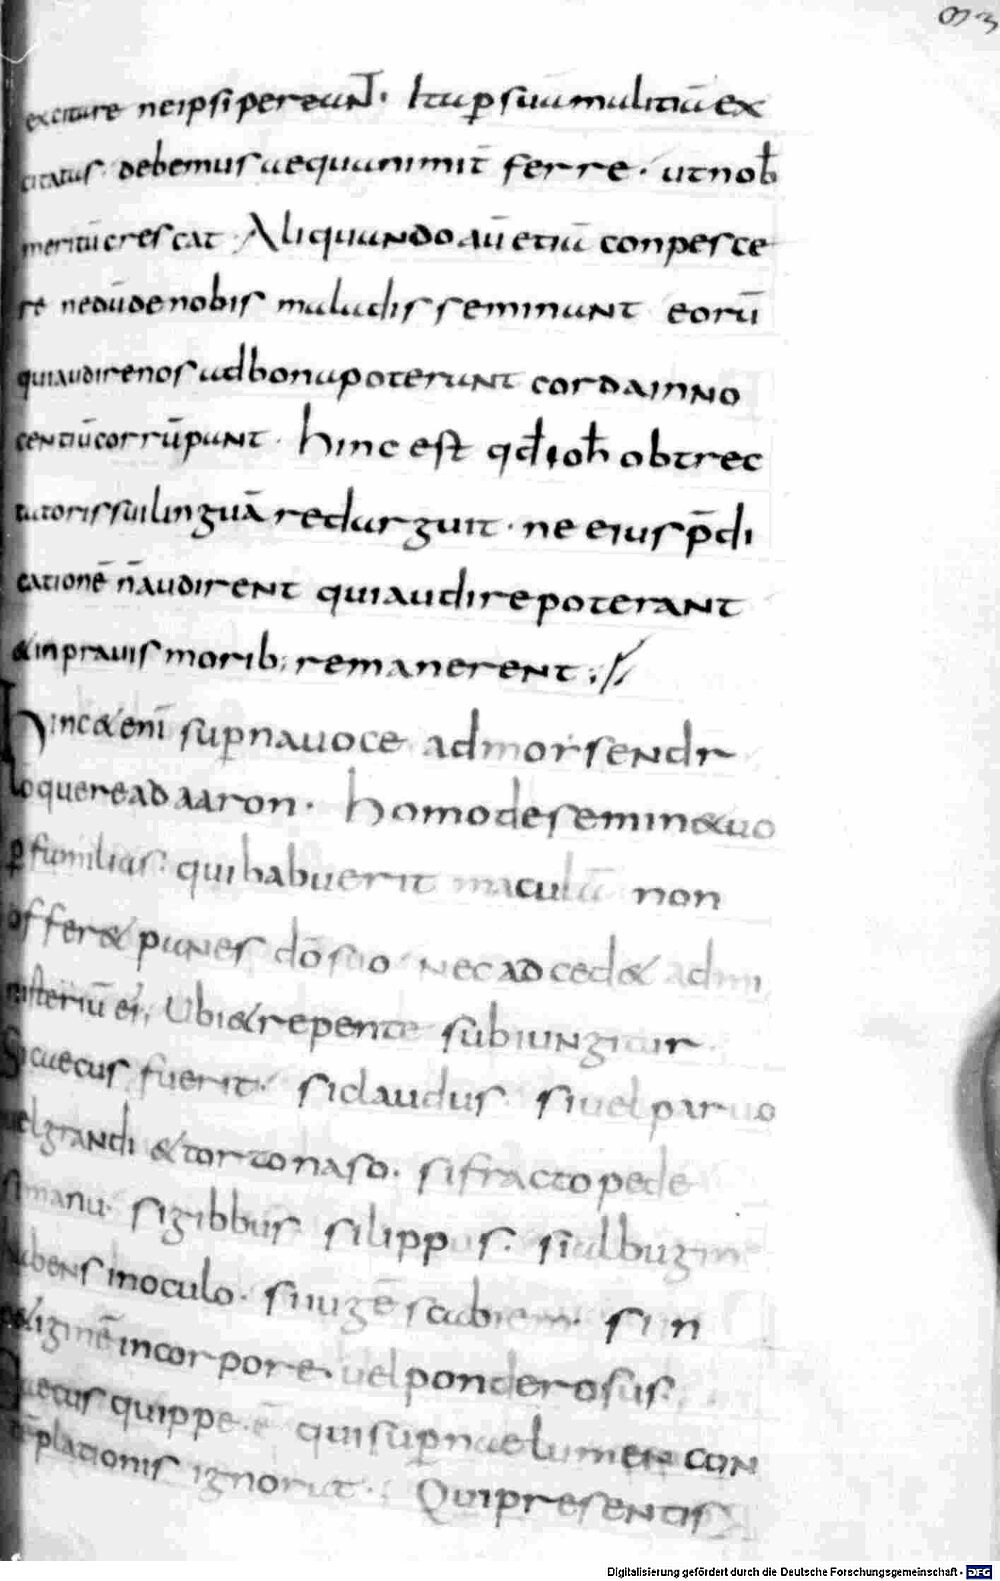 93
excitare neipsi pereant. Ita p̱ suā malitiā ex
citatas debemus aequanimit̄ ferre. ut nob̄
meritū crescat. Aliquando aū etiā conpesce
re ne dū de nobis mala disseminant eorū
qui audire nos ad bona poterunt corda inno
centiū corrūpant. hinc est qđ ioh̄ obtrec
tatoris sui linguā redarguit. ne eius p̄di
cationē n̄ audirent qui audire poterant
& in prauis morib; remanerent.
hinc & enī sup̱na uoce ad morsen dr̄
loquere ad aaron. homo de semine tuo
p̱ familias. qui habuerit maculā non
offer& panes dō suo nec adced& admi
nisteriū ei; Ubi & repente subiungitur.
Si caecus fuerit. si claudus. si uel paruo
uel grandi & torto naso. si fracto pede
si manu. si gibbus si lippus. si albugin
habens in oculo. si iugē scabiem. si in
petiginē in corpore. uel ponderosus.
Caecus quippe ē qui sup̱nae lumen con
tēplationis ignorat. Qui presentis
Digitalisierung gefördert durch die Deutsche Forschungsgemeinschaft - DFG